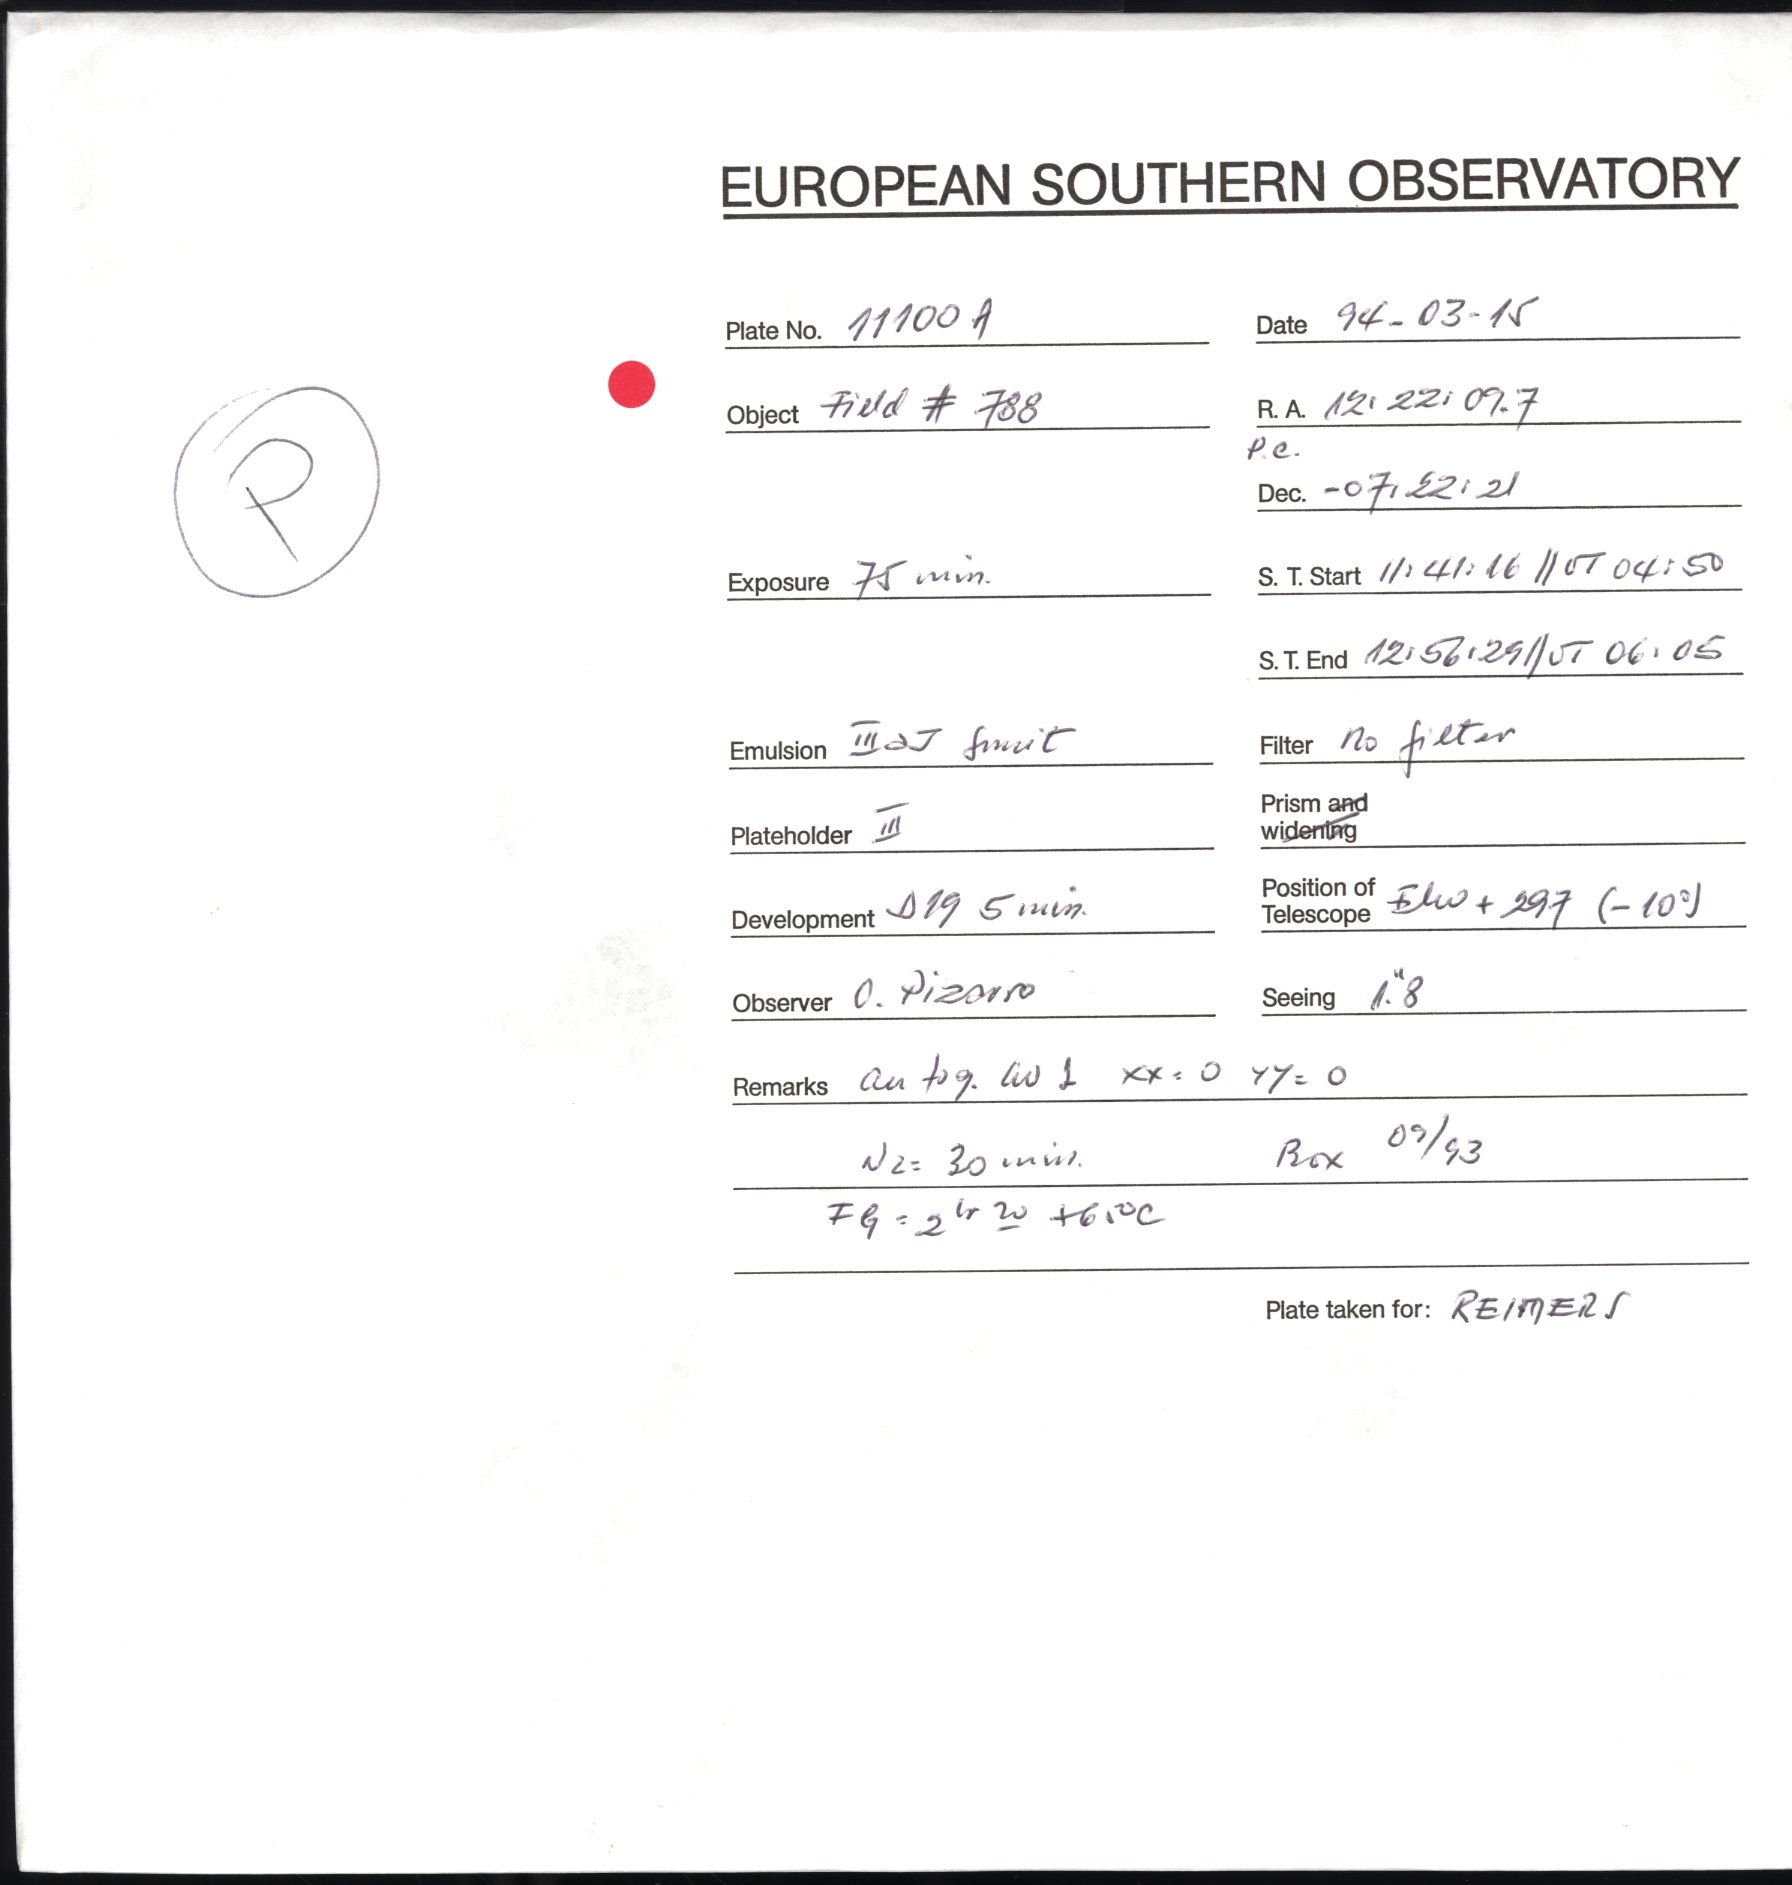 EUROPEAN SOUTHERN OBSERVATORY
Plate No. 11100 A
Date 94-03-15
P
Object Field # 788
R. A. 12: 22: 09.7
P.C.
Dec. -07: 22: 21
Exposure 75 min.
S. T. Start 11: 41: 16 // UT 04: 50
S. T. End 12: 56: 29 // UT 06: 05
Emulsion III aJ
Filter no filter
Plateholder III
Prism and
widening
Development D19 5 min.
Position of
Telescope + 297 (-10°)
Observer O. Pizarro
Seeing 1."8
Remarks xx= 0 yy= 0
N2= 30 min. Box 09/93
FG = 2 hr 20
Plate taken for: REIMERS